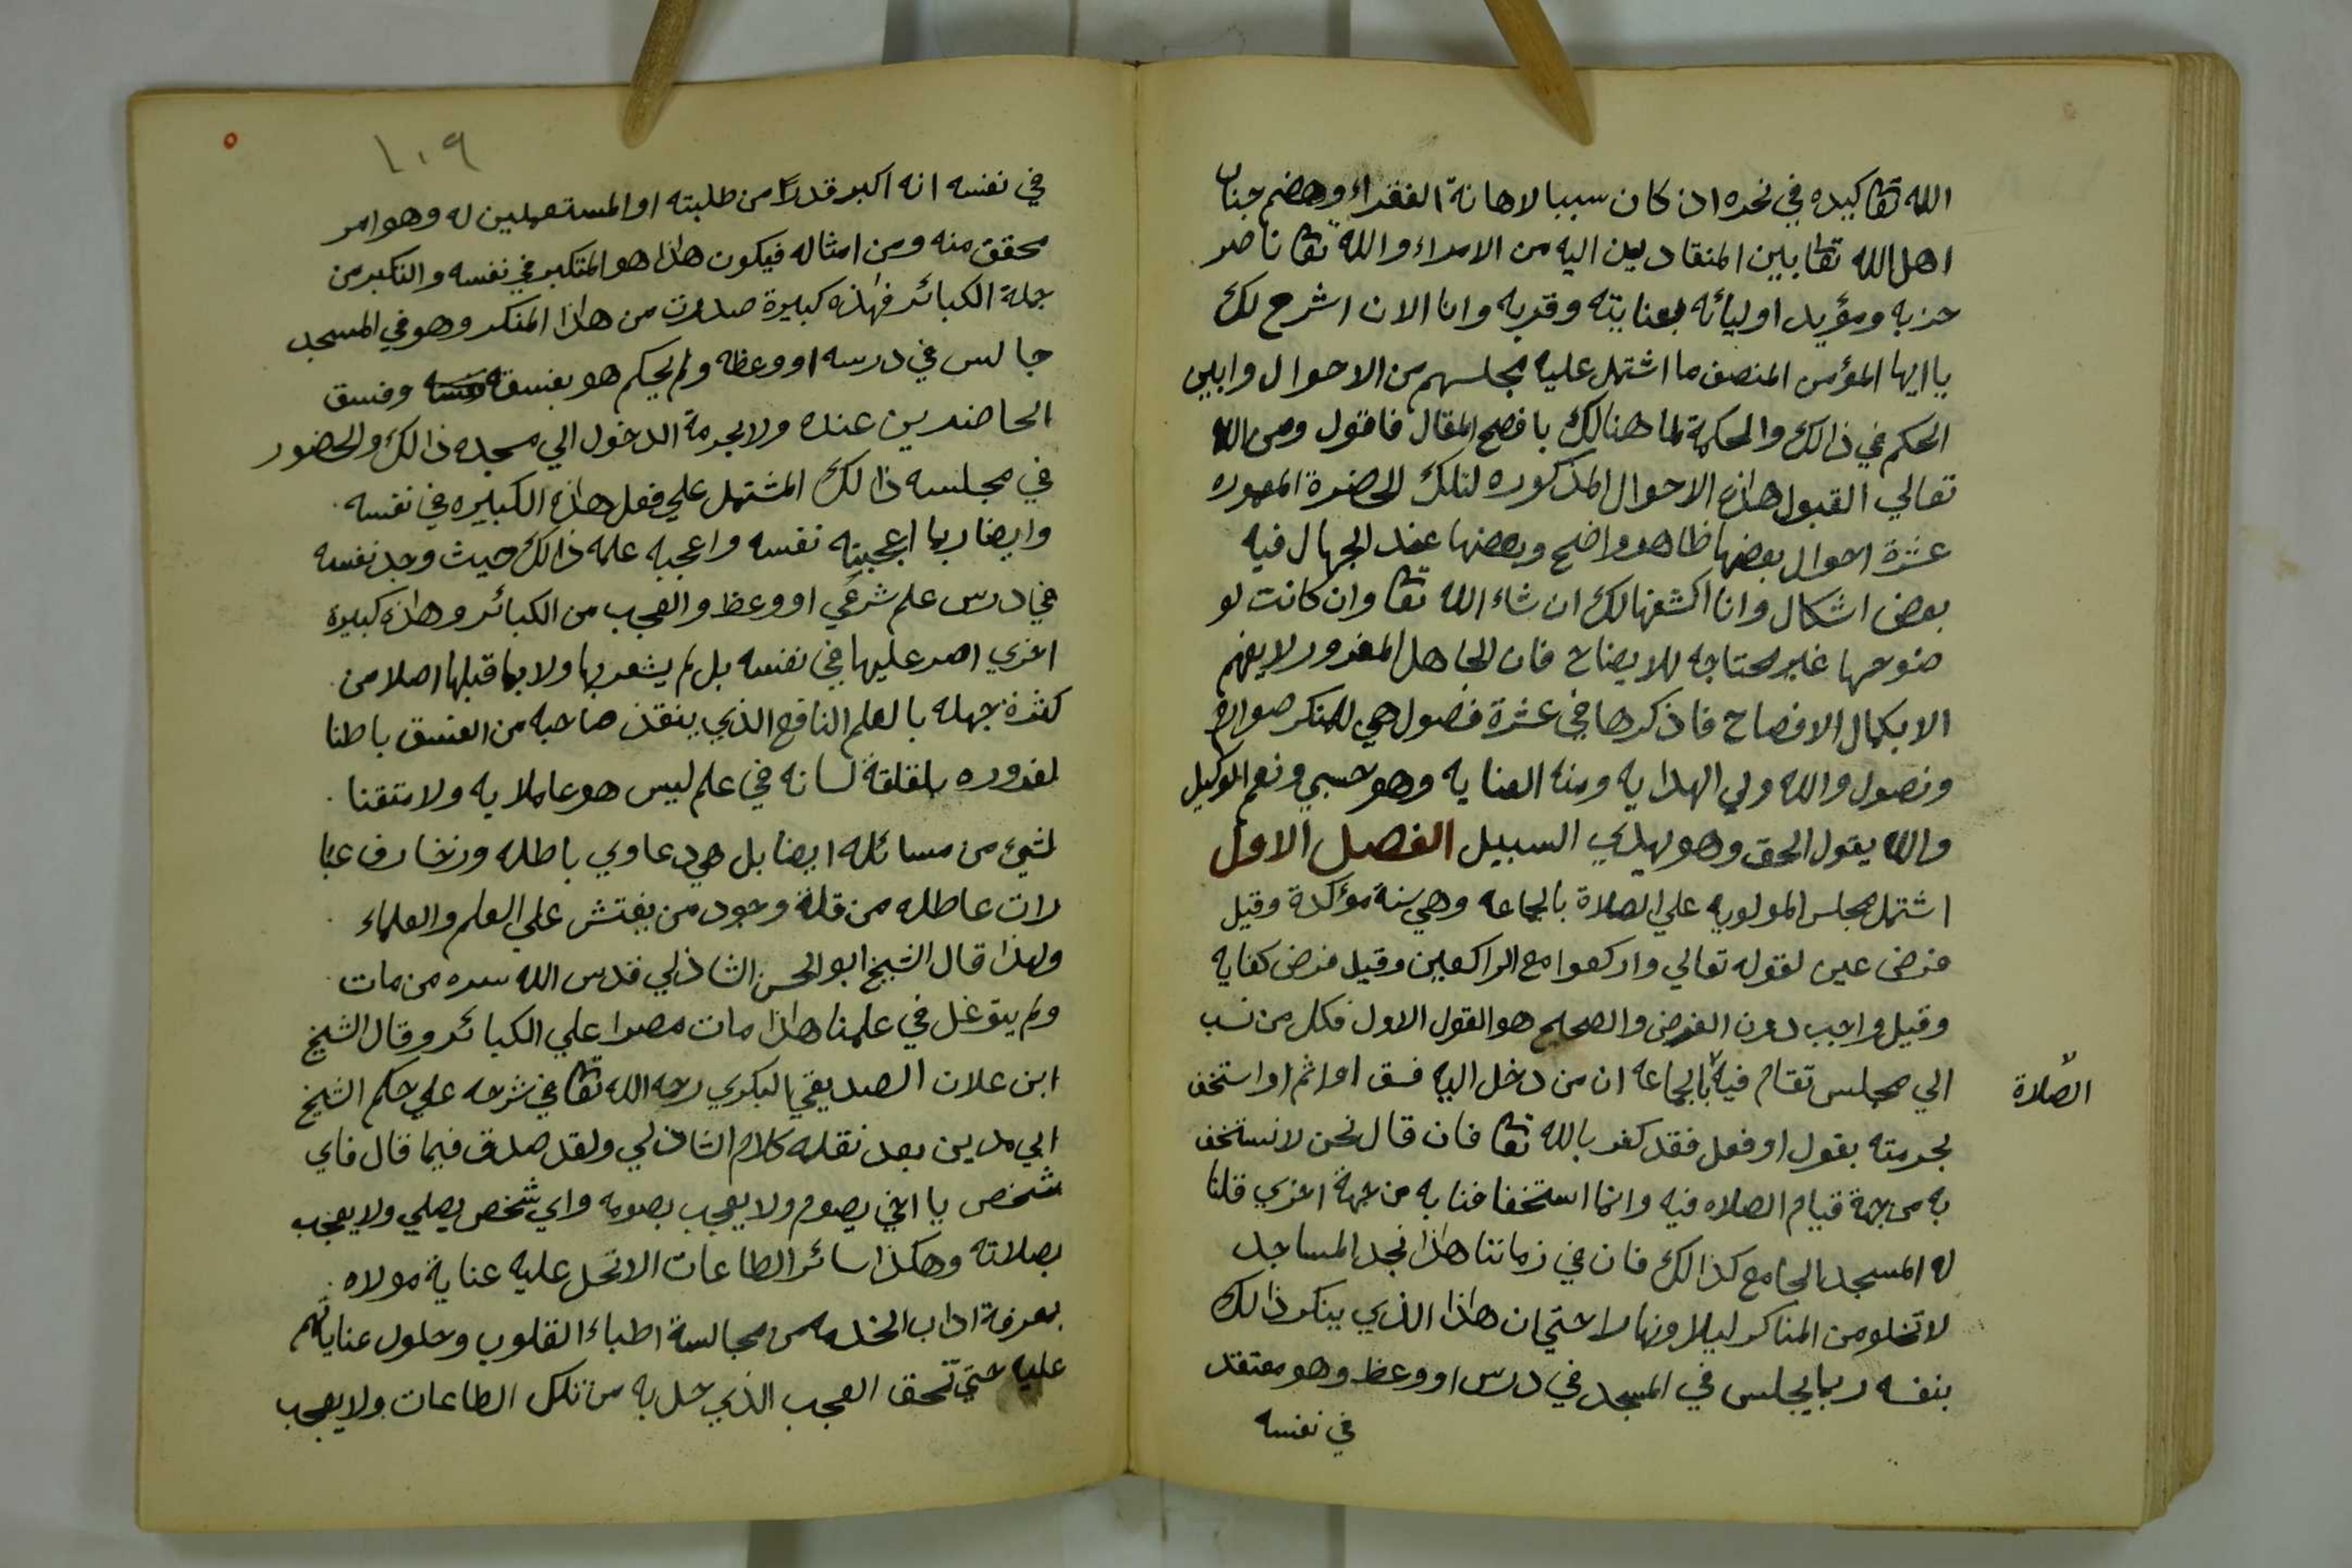 الله تعا كيده في نحره اذ كان سببا لاهانة الفقراء وهضم جناب
اهل الله تعا بين المنقادين اليه من الامراء والله تعا ناصر
حزبه ومؤيد اوليائه بعنايته وقربه وانا الان اشرح لك
يا ايها المؤمن المنصف ما اشتمل عليه مجلسهم من الاحوال وابين
الحكم في ذالك والحكمة لما هنالك بافصح المقال فاقول ومن الله
تعالي القبول هذه الاحوال المذكوره لتلك الحضرة المعموره
عشرة احوال بعضها ظاهر واضح وبعضها عند الجهال فيه
بعض اشكال وانا اكشفها لك ان شاء الله تعا وان كانت لو
ضوحها غير محتاجه للايضاح فان الجاهل المغرور لا يفهم
الا بكمال الافصاح فاذكرها في عشرة فصول هي للمنكر صوارم
ونصول والله ولي الهدايه ومنه العنايه وهو حسبي ونعم الوكيل
والله يقول الحق وهو يهدي السبيل الفصل الاول
اشتمل مجلس المولويه علي الصلاة بالجماعه وهي سنة مؤكدة وقيل
فرض عين لقوله تعالي واركعوا مع الراكعين وقيل فرض كفايه
وقيل واجب دون الفرض والصحيح هو القول الاول فكل من نسب
الي مجلس تقام فيه بالجماعه ان من دخل اليه فسق او اثم او استخف
الصلاة
بحرمته بقول او فعل فقد كفر بالله تعا فان قال نحن لا نستخف
به من جهة قيام الصلاه فيه وانما استخفافنا به من جهة اخري قلنا
له المسجد الجامع كذالك فان في زماننا هذا نجد المساجد
لا تخلو من المناكر ليلا ونهارا حتي ان هذا الذي ينكر ذالك
بنفسه ربما يجلس في المسجد في درس او وعظ وهو معتقد
في نفسه
١٠٩
في نفسه انه اكبر قدرا من طلبته او المستمعين له وهو امر
محقق منه ومن امثاله فيكون هذا هو المتكبر في نفسه والتكبر من
جملة الكبائر فهذه كبيرة صدرت من هذا المنكر وهو في المسجد
جالس في درسه او وعظه ولم يحكم هو بفسقه وفسق
الحاضرين عنده ولا بحرمة الدخول الي مسجده ذالك والحضور
في مجلسه ذالك المشتمل علي فعل هذه الكبيره في نفسه
وايضا ربما اعجبته نفسه واعجبه علمه ذالك حيث وجد نفسه
في درس علم شرعي او وعظ والعجب من الكبائر وهذه كبيرة
اخري اصر عليها في نفسه بل لم يشعر بها ولا بما قبلها اصلا من
كثرة جهله بالعلم النافع الذي ينقذ صاحبه من الفسق باطنا
لغروره بلقلقة لسانه في علم ليس هو عاملا به ولا متقنا
لشيء من مسائله ايضا بل هي دعاوي باطله وزخارف عبا
رات عاطله من قلة وجود من يفتش علي العلم والعلماء
ولهذا قال الشيخ ابو الحسن الشاذلي قدس الله سره من مات
ولم يتوغل في علمنا هذا مات مصرا علي الكبائر وقال الشيخ
ابن علان الصديقي البكري رحمه الله تعا في شرحه علي حكم الشيخ
ابي مدين بعد نقله كلام الشاذلي ولقد صدق فيما قال فاي
شخص يا اخي يصوم ولا يعجب بصومه واي شخص يصلي ولا يعجب
بصلاته وهكذا سائر الطاعات الا تحل عليه عناية مولاه
بمعرفة اداب الخدمه من مجالسة اطباء القلوب وحلول عناياتهم
عليه حتي تحق العجب الذي حل به من تلك الطاعات ولا يعجب